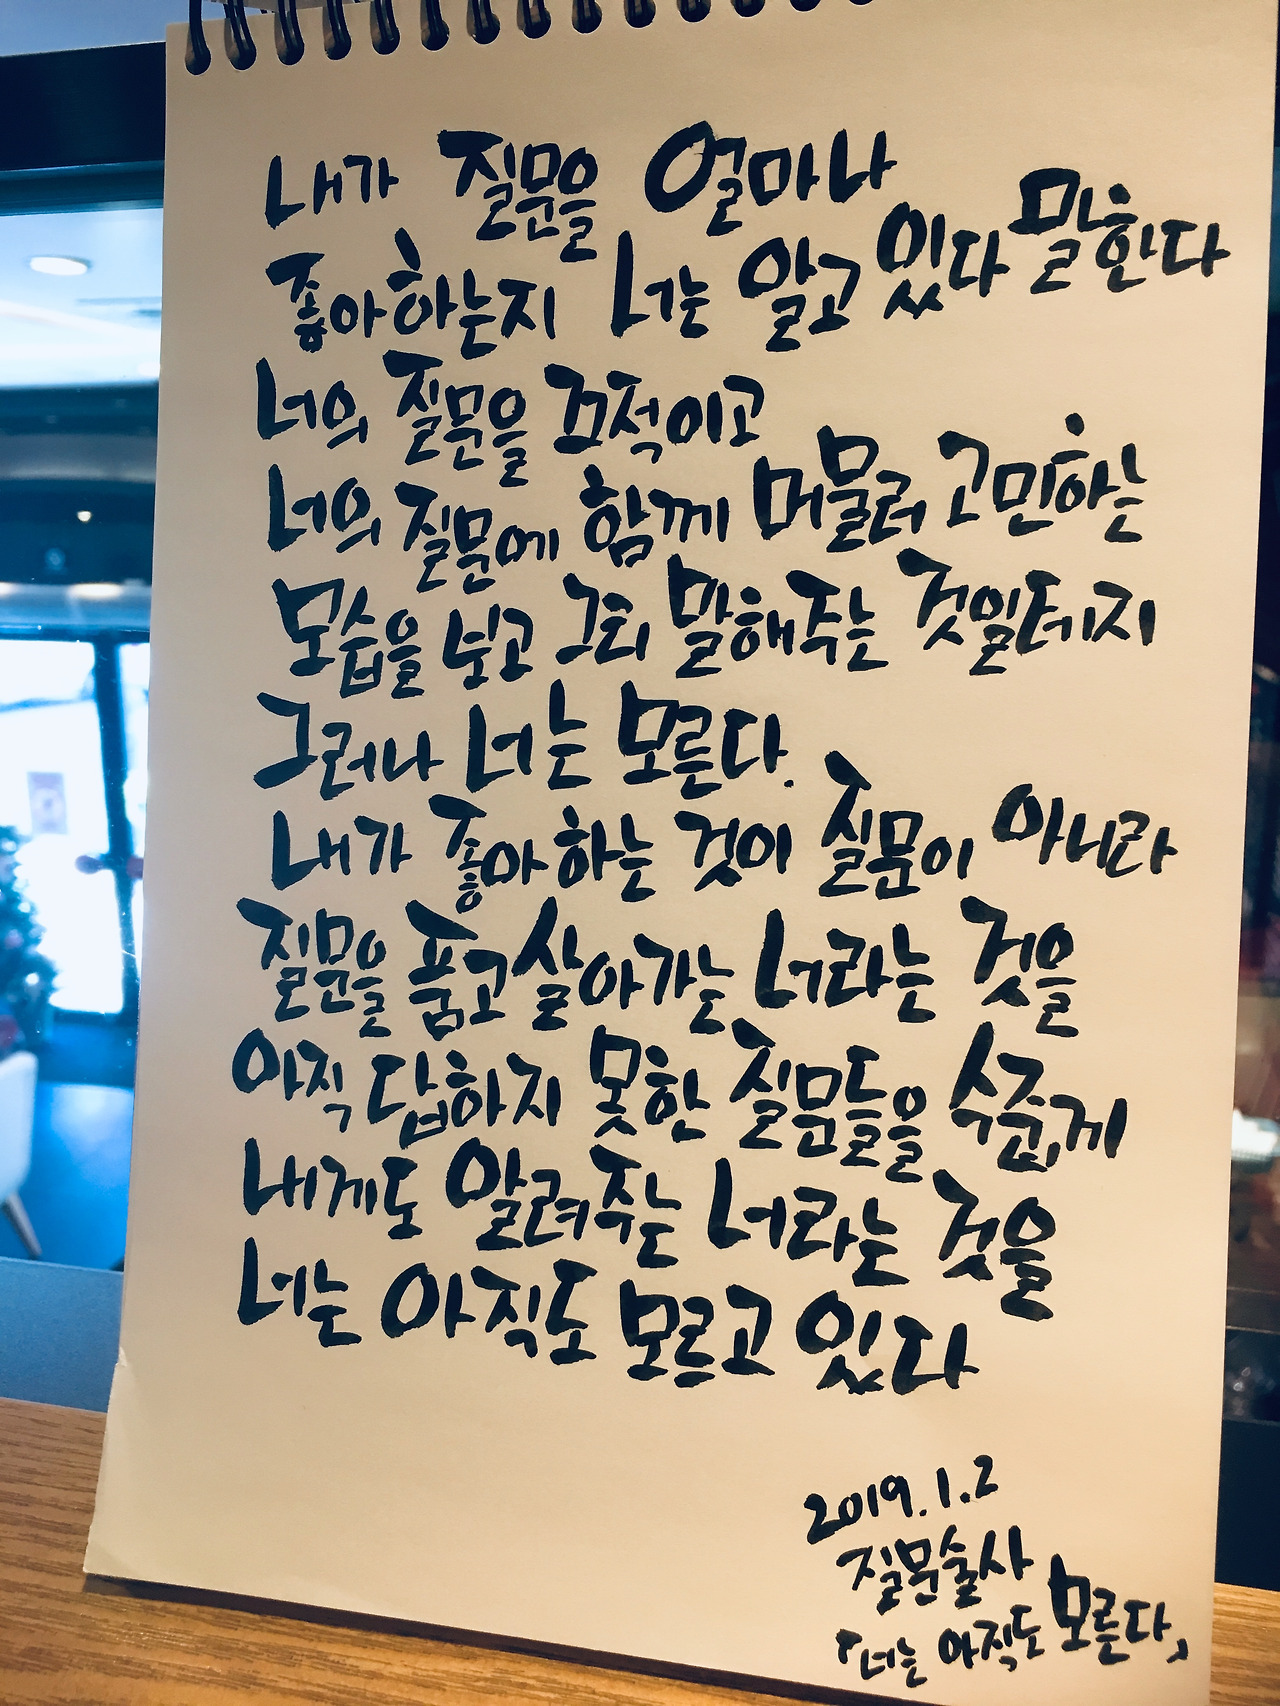 내가 질문을 얼마나
좋아하는지 너는 알고 있다 말한다
너의 질문을 끄적이고
너의 질문에 함께 머물러 고민하는
모습을 보고 그리 말해주는 것일테지
그러나 너는 모른다.
내가 좋아하는 것이 질문이 아니라
질문을 품고 살아가는 너라는 것을
아직 답하지 못한 질문들을 수줍게
내게도 알려주는 너라는 것을
너는 아직도 모르고 있다
2019.1.2
질문술사
「너는 아직도 모른다」